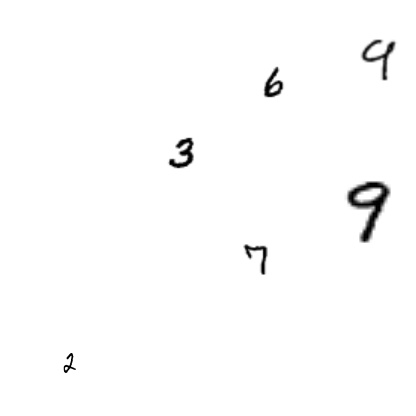 9
6
3
9
7
2